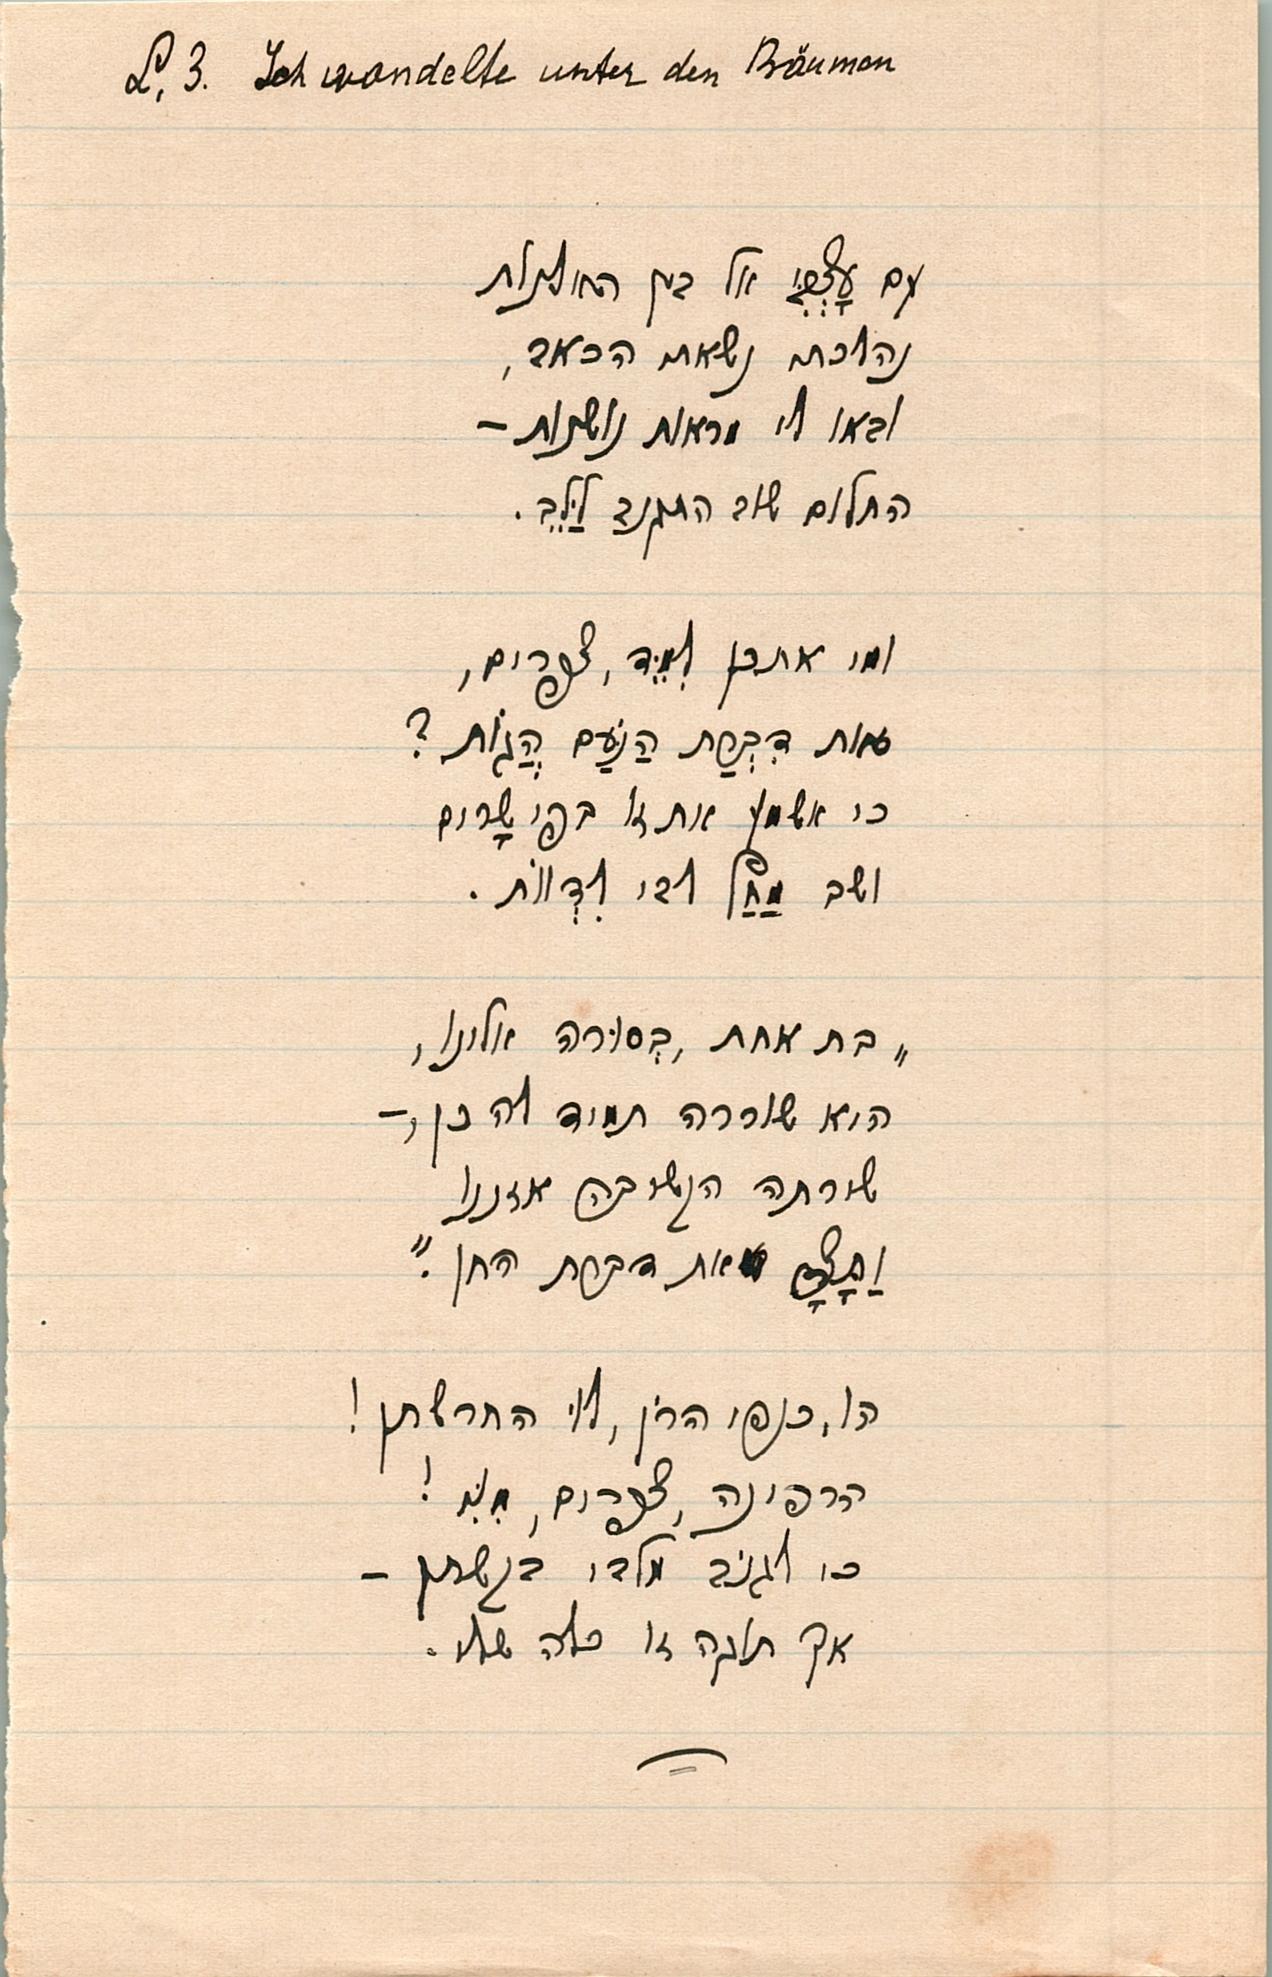 L. 3. Ich wandelte unter den Bäumen
עם עָצְבִּי אל בין האילנות
נהלכת נשאת הכאב,
ובאו לי מראות נושנות –
החלום שוב התגנב לַלֵּב.
ומי אתכן לִמֵּד, צפרים,
זאת דִּבְרַת הַנֹּעַם הֲגוֹת?
כי אשמע את זו בפי שָׁרים
ושב מַחַל לבי לִדְווֹת.
„בת אחת, בְּסוּרה אלינו,
היא שוררה תמיד לה כן, –
שירתה הקשיבה אזננו
את דברת החן."
הו, כנפי הרֹן, לוּ החרשתן!
הרפינה, צפרים, מִנִּי!
כי לגנֹב מלבי בקשתן –
אך תוגה זו כלה שלי.